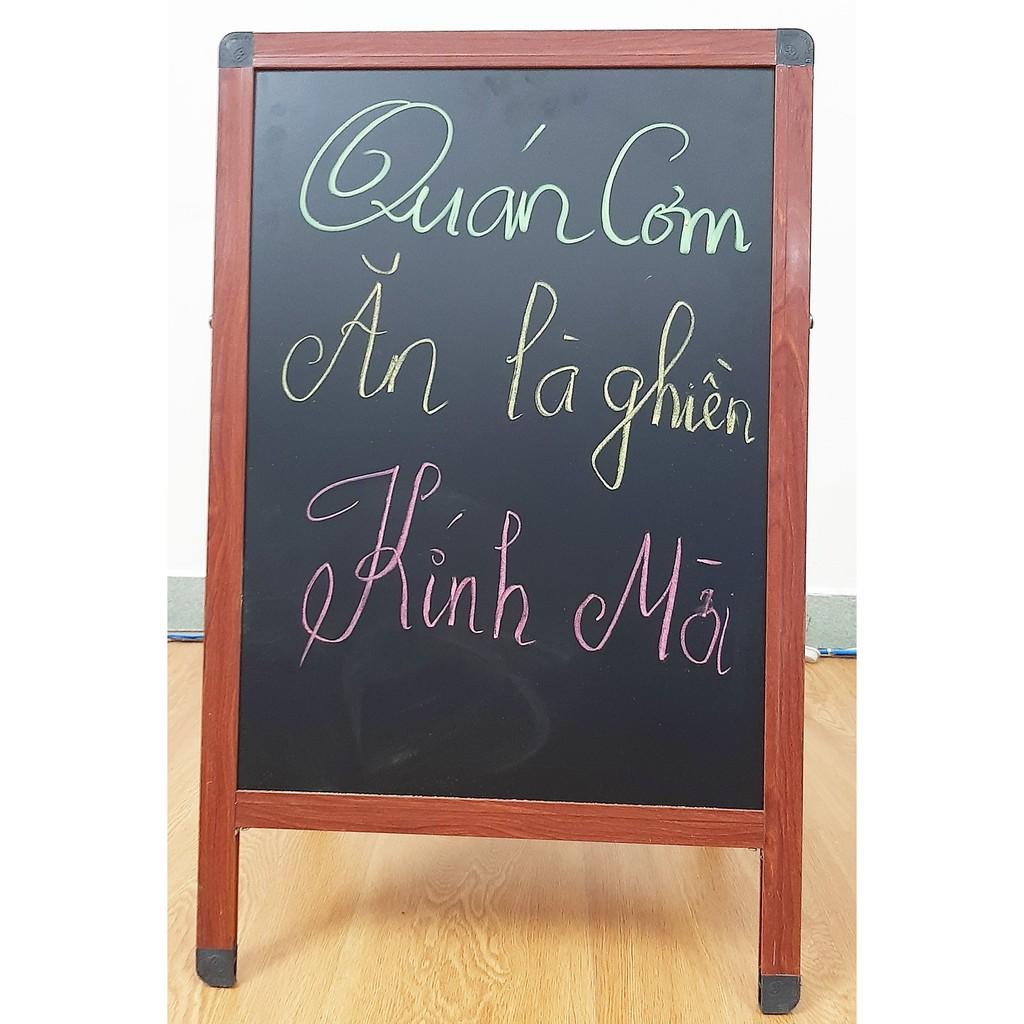 Quán Cơm
Ăn là ghiền
Kính Mời